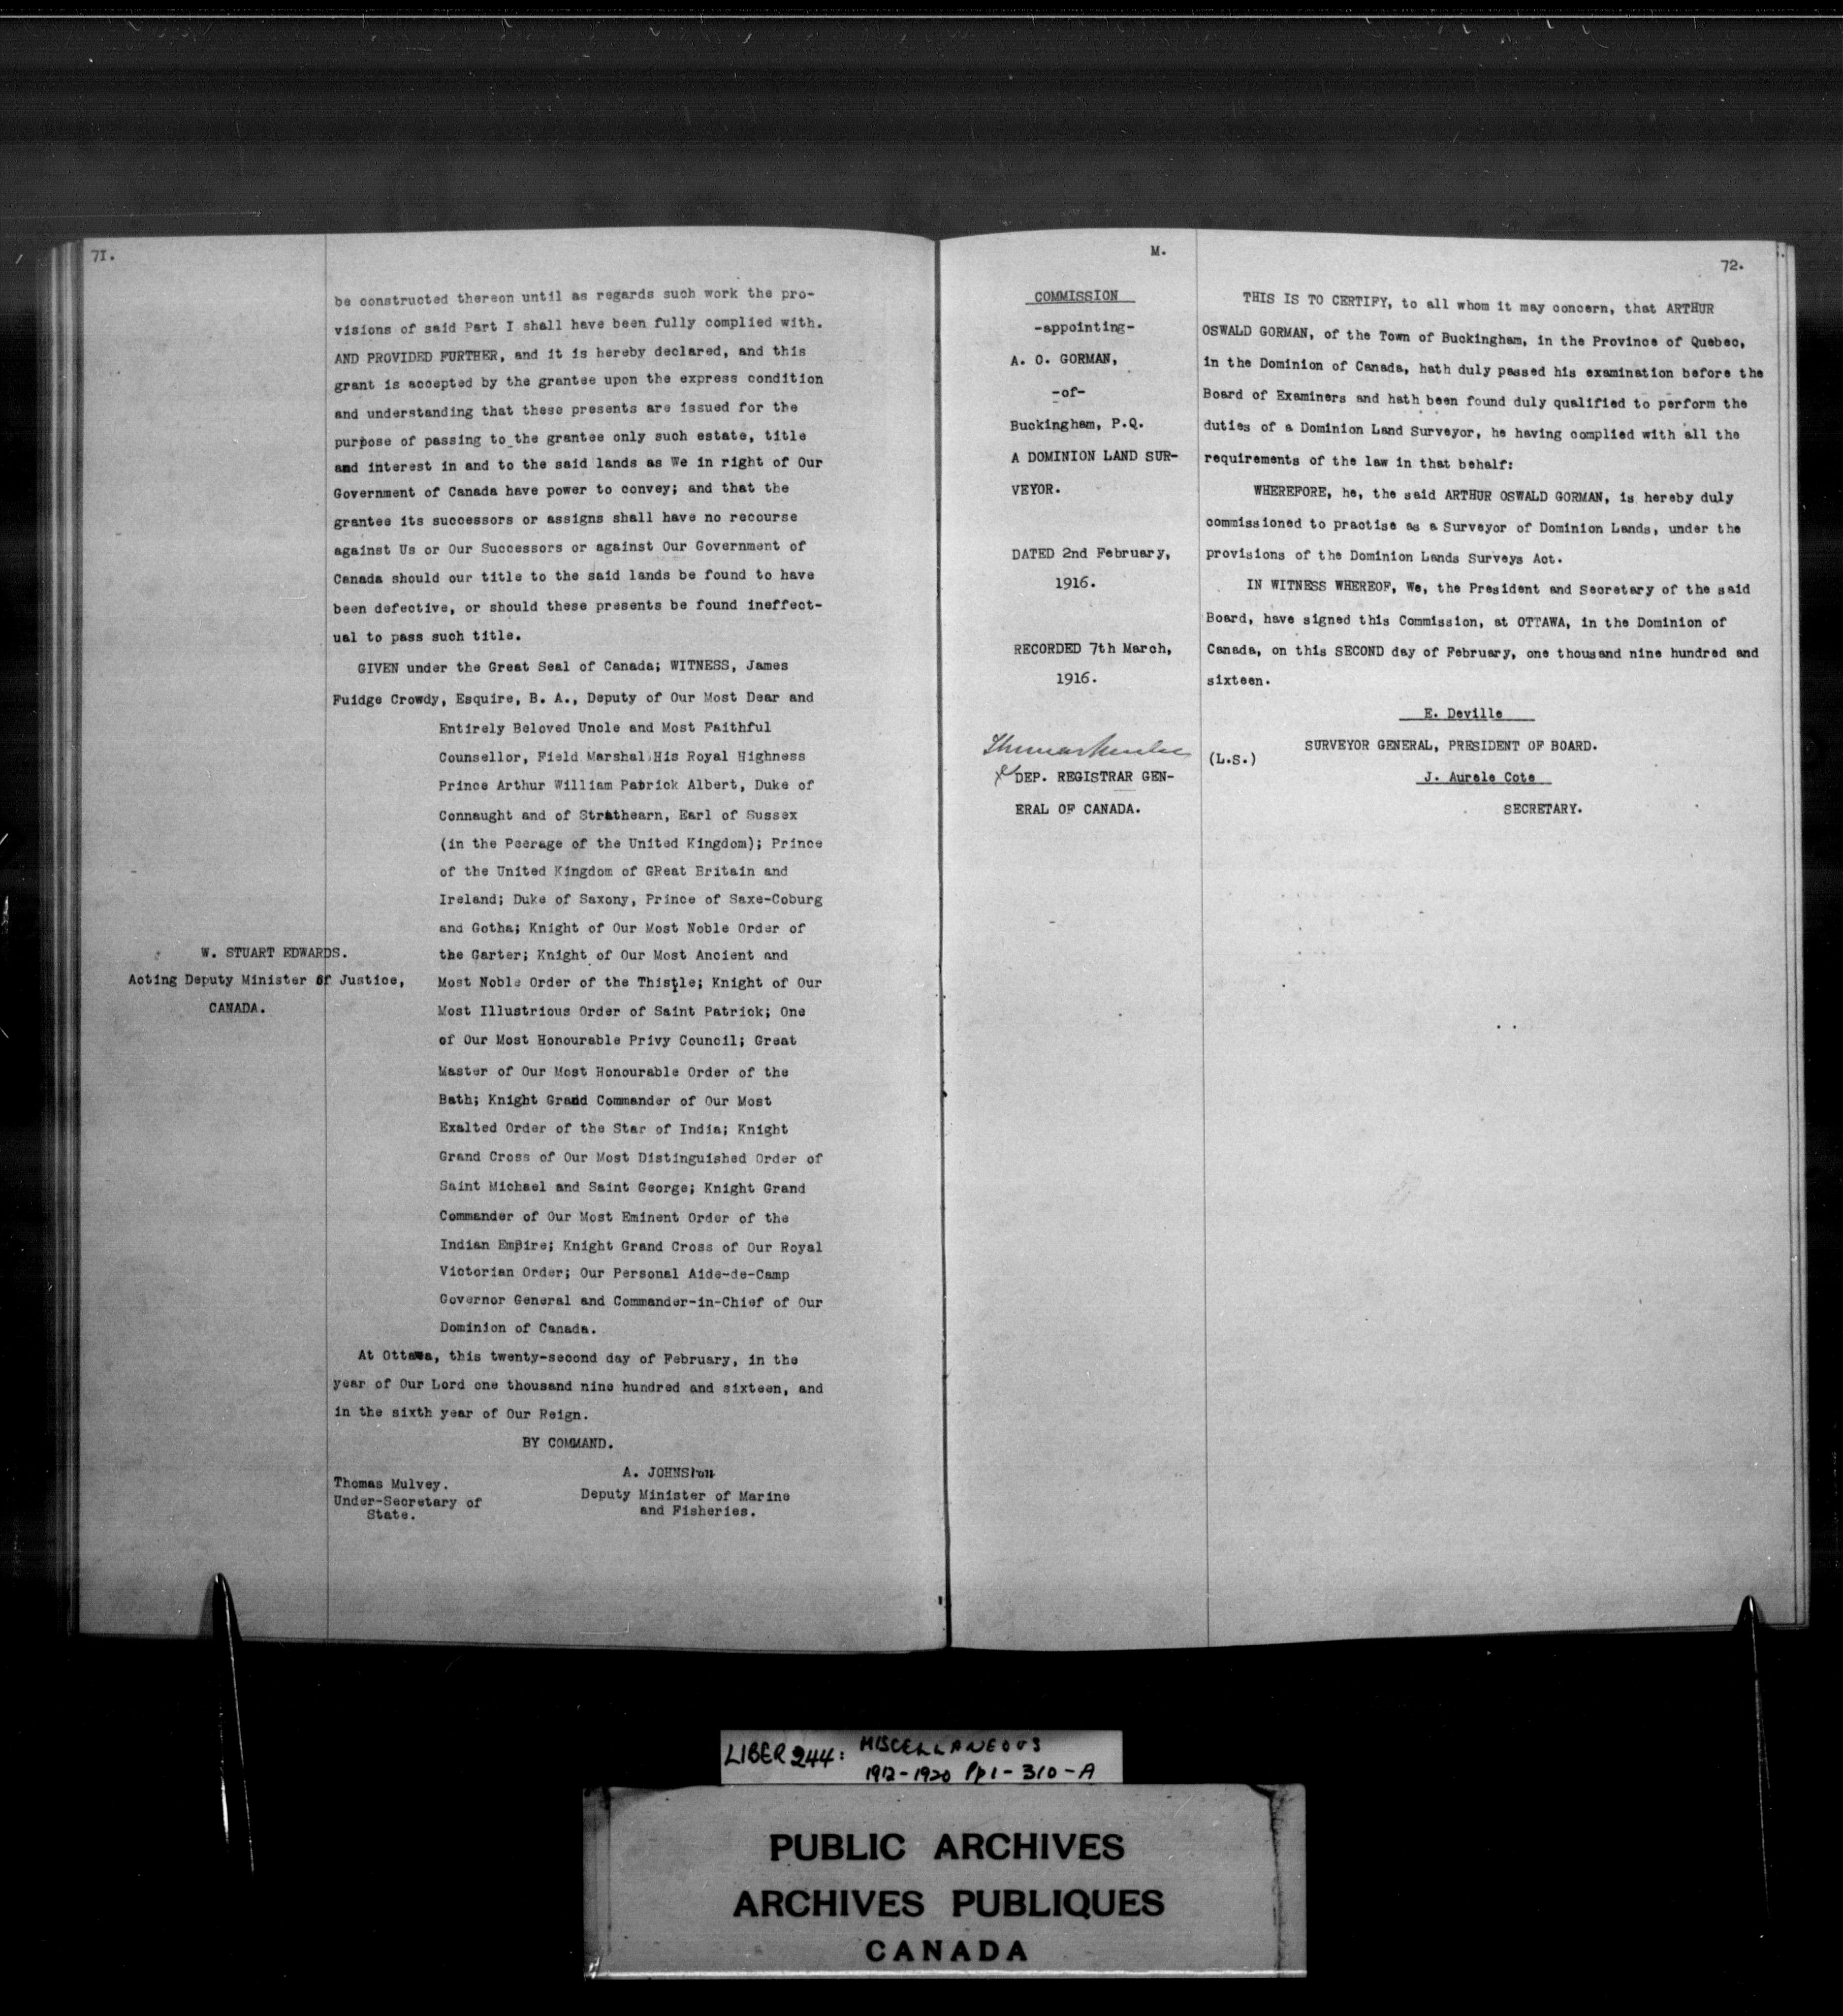 71.
be constructed thereon until as regards such work the pro-
visions of said Part I shall have been fully complied with.
AND PROVIDED FURTHER, and it is hereby declared, and this
grant is accepted by the grantee upon the express condition
and understanding that these presents are issued for the
purpose of passing to the grantee only such estate, title
and interest in and to the said lands as We in right of Our
Government of Canada have power to convey; and that the
grantee its successors or assigns shall have no recourse
against Us or Our Successors or against Our Government of
Canada should our title to the said lands be found to have
been defective, or should these presents be found ineffect-
ual to pass such title.
GIVEN under the Great Seal of Canada; WITNESS, James
Fuidge Crowdy, Esquire, B. A., Deputy of Our Most Dear and
Entirely Beloved Uncle and Most Faithful
Counsellor, Field Marshal His Royal Highness
Prince Arthur William Patrick Albert, Duke of
Connaught and of Strathearn, Earl of Sussex
(in the Peerage of the United Kingdom); Prince
of the United Kingdom of GReat Britain and
Ireland; Duke of Saxony, Prince of Saxe-Coburg
and Gotha; Knight of Our Most Noble Order of
the Garter; Knight of Our Most Ancient and
Most Noble Order of the Thistle; Knight of Our
Most Illustrious Order of Saint Patrick; One
of Our Most Honourable Privy Council; Great
Master of Our Most Honourable Order of the
Bath; Knight Grand Commander of Our Most
Exalted Order of the Star of India; Knight
Grand Cross of Our Most Distinguished Order of
Saint Michael and Saint George; Knight Grand
Commander of Our Most Eminent Order of the
Indian Empire; Knight Grand Cross of Our Royal
Victorian Order; Our Personal Aide-de-Camp
Governor General and Commander-in-Chief of Our
Dominion of Canada.
W. STUART EDWARDS.
Acting Deputy Minister of Justice,
CANADA.
At Ottawa, this twenty-second day of February, in the
year of Our Lord one thousand nine hundred and sixteen, and
in the sixth year of Our Reign.
BY COMMAND.
A. JOHNSton
Deputy Minister of Marine
and Fisheries.
Thomas Mulvey.
Under-Secretary of
State.
M.
72.
COMMISSION
-appointing-
A. O. GORMAN,
-of-
Buckingham, P.Q.
A DOMINION LAND SUR-
VEYOR.
DATED 2nd February,
1916.
RECORDED 7th March,
1916.
DEP. REGISTRAR GEN-
ERAL OF CANADA.
THIS IS TO CERTIFY, to all whom it may concern, that ARTHUR
OSWALD GORMAN, of the Town of Buckingham, in the Province of Quebec,
in the Dominion of Canada, hath duly passed his examination before the
Board of Examiners and hath been found duly qualified to perform the
duties of a Dominion Land Surveyor, he having complied with all the
requirements of the law in that behalf:
WHEREFORE, he, the said ARTHUR OSWALD GORMAN, is hereby duly
commissioned to practise as a Surveyor of Dominion Lands, under the
provisions of the Dominion Lands Surveys Act.
IN WITNESS WHEREOF, We, the President and Secretary of the said
Board, have signed this Commission, at OTTAWA, in the Dominion of
Canada, on this SECOND day of February, one thousand nine hundred and
sixteen.
E. Deville
SURVEYOR GENERAL, PRESIDENT OF BOARD.
(L.S.)
J. Aurele Cote
SECRETARY.
LIBER 244: MISCELLANEOUS
1912-1920 Pp1-310-A
PUBLIC ARCHIVES
ARCHIVES PUBLIQUES
CANADA